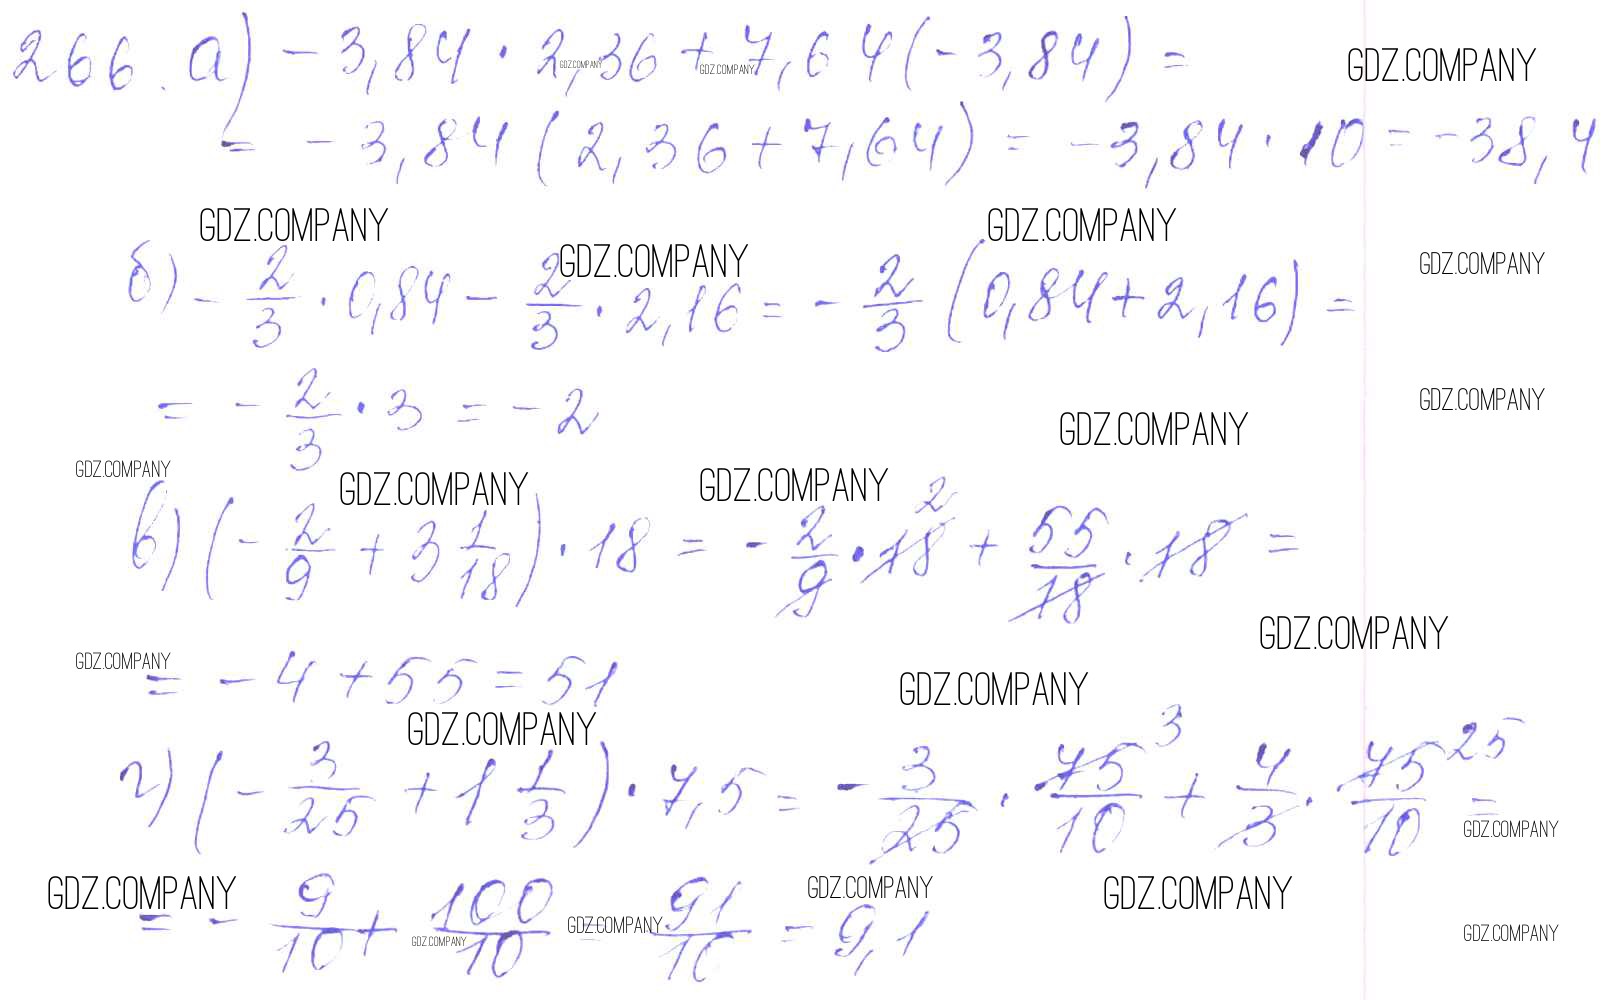 266. а) - 3,84 · 2,36 + 7,64 (- 3,84) =
GDZ.COMPANY
GDZ.COMPANY
GDZ.COMPANY
= - 3,84 (2,36 + 7,64) = - 3,84 · 10 = - 38,4
GDZ.COMPANY
GDZ.COMPANY
GDZ.COMPANY
GDZ.COMPANY
б) - 2/3 · 0,84 - 2/3 · 2,16 = - 2/3 (0,84 + 2,16) =
= - 2/3 · 3 = - 2
GDZ.COMPANY
GDZ.COMPANY
GDZ.COMPANY
GDZ.COMPANY
GDZ.COMPANY
в) (- 2/9 + 3 1/18) · 18 = - 2/9 · 18 2 + 55/18 · 18 =
GDZ.COMPANY
GDZ.COMPANY
= - 4 + 55 = 51
GDZ.COMPANY
GDZ.COMPANY
г) (- 3/25 + 1 1/3) · 7,5 = - 3/25 · 75/10 3 + 4/3 · 75/10 25 =
GDZ.COMPANY
GDZ.COMPANY
GDZ.COMPANY
GDZ.COMPANY
= - 9/10 + 100/10 = 91/10 = 9,1
GDZ.COMPANY
GDZ.COMPANY
GDZ.COMPANY